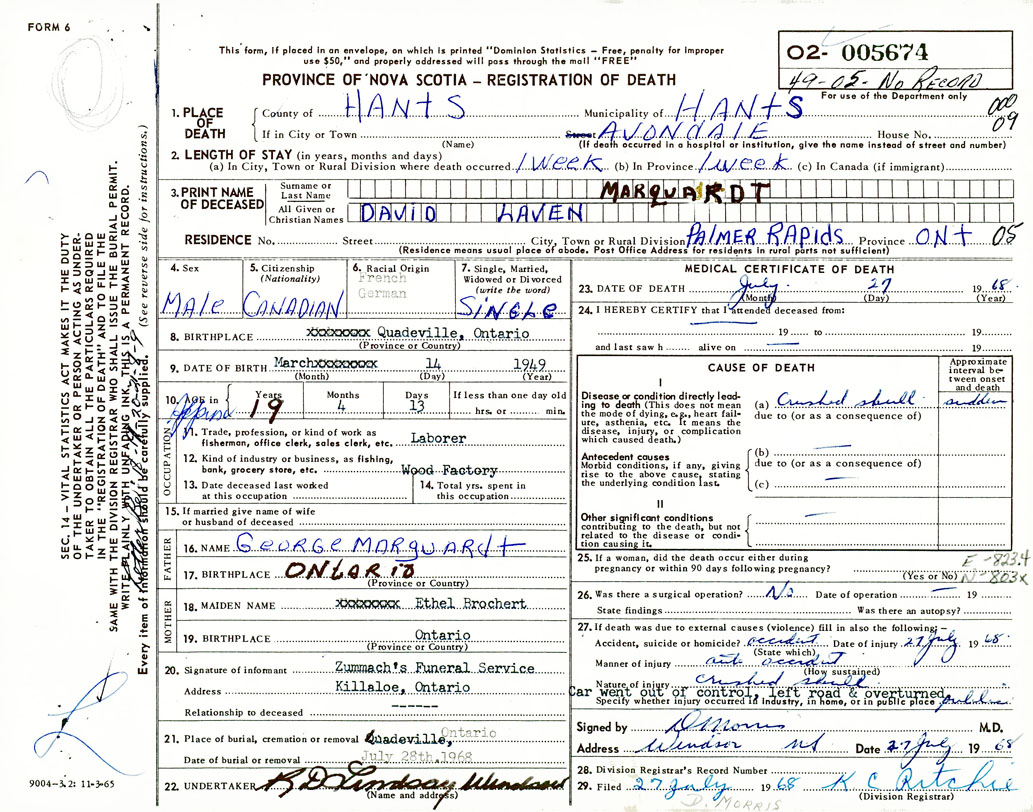 FORM 6
This form, if placed in an envelope, on which is printed "Dominion Statistics – Free, penalty for improper
use $50," and properly addressed will pass through the mail "FREE"
PROVINCE OF NOVA SCOTIA – REGISTRATION OF DEATH
02- 005674
49-05- No RECORD
For use of the Department only
000
09
1. PLACE OF DEATH
County of HANTS Municipality of HANTS
If in City or Town (Name) Street AVONDALE House No.
(If death occurred in a hospital or institution, give the name instead of street and number)
2. LENGTH OF STAY (in years, months and days)
(a) In City, Town or Rural Division where death occurred 1 WEEK (b) In Province 1 WEEK (c) In Canada (if immigrant)
3. PRINT NAME OF DECEASED
Surname or Last Name MARQUARDT
All Given or Christian Names DAVID LAVEN
RESIDENCE No. Street City, Town or Rural Division PALMER RAPIDS Province ONT 05
(Residence means usual place of abode. Post Office Address for residents in rural parts not sufficient)
4. Sex MALE
5. Citizenship (Nationality) CANADIAN
6. Racial Origin French German
7. Single, Married, Widowed or Divorced (write the word) SINGLE
8. BIRTHPLACE xxxxxxxx Quadeville, Ontario
(Province or Country)
9. DATE OF BIRTH Marchxxxxxxxx 14 1949
(Month) (Day) (Year)
10. AGE in Approx Years 19 Months 4 Days 13 If less than one day old hrs. or min.
OCCUPATION
11. Trade, profession, or kind of work as
fisherman, office clerk, sales clerk, etc. Laborer
12. Kind of industry or business, as fishing,
bank, grocery store, etc. Wood Factory
13. Date deceased last worked
at this occupation
14. Total yrs. spent in
this occupation
15. If married give name of wife
or husband of deceased
FATHER
16. NAME GEORGE MARQUARDT
17. BIRTHPLACE ONTARIO
(Province or Country)
MOTHER
18. MAIDEN NAME xxxxxxxx Ethel Brochert
19. BIRTHPLACE Ontario
(Province or Country)
20. Signature of informant Zummach's Funeral Service
Address Killaloe, Ontario
Relationship to deceased ------
21. Place of burial, cremation or removal Quadeville, Ontario
Date of burial or removal July 28th.1968
22. UNDERTAKER R D Lindsay Windsor
(Name and address)
MEDICAL CERTIFICATE OF DEATH
23. DATE OF DEATH July 27 1968
(Month) (Day) (Year)
24. I HEREBY CERTIFY that I attended deceased from:
19 to 19
and last saw h alive on 19
CAUSE OF DEATH
Approximate interval between onset and death
I
Disease or condition directly leading to death (This does not mean
the mode of dying, e.g., heart failure, asthenia, etc. It means the
disease, injury, or complication
which caused death.)
(a) Crushed skull sudden
due to (or as a consequence of)
Antecedent causes
Morbid conditions, if any, giving
rise to the above cause, stating
the underlying condition last.
(b)
due to (or as a consequence of)
(c)
II
Other significant conditions
contributing to the death, but not
related to the disease or condition causing it.
25. If a woman, did the death occur either during
pregnancy or within 90 days following pregnancy?
(Yes or No)
E-823.4
N-803x
26. Was there a surgical operation? No Date of operation 19
State findings Was there an autopsy?
27. If death was due to external causes (violence) fill in also the following:–
Accident, suicide or homicide? accident Date of injury 27 July 1968
(State which)
Manner of injury auto accident
(How sustained)
Nature of injury crushed skull
Car went out of control, left road & overturned
Specify whether injury occurred in industry, in home, or in public place public
Signed by D Morris M.D.
Address Windsor NS Date 27 July 1968
28. Division Registrar's Record Number
29. Filed 27 July 1968 K C Ritchie
(Division Registrar)
D. MORRIS
SEC. 14 – VITAL STATISTICS ACT MAKES IT THE DUTY
OF THE UNDERTAKER OR PERSON ACTING AS UNDER-
TAKER TO OBTAIN ALL THE PARTICULARS REQUIRED
IN THE "REGISTRATION OF DEATH" AND TO FILE THE
SAME WITH THE DIVISION REGISTRAR WHO SHALL ISSUE THE BURIAL PERMIT.
WRITE PLAINLY WITH UNFADING INK, THIS IS A PERMANENT RECORD.
Every item of information should be carefully supplied. (See reverse side for instructions.)
9004-3.2: 11-3-65